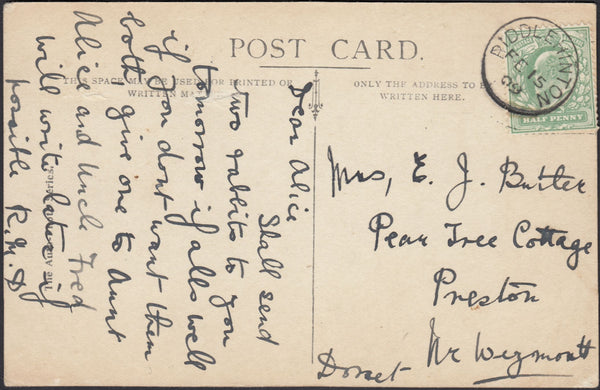 POST CARD.
THIS SPACE MAY BE USED FOR PRINTED OR
WRITTEN MA
ONLY THE ADDRESS TO BE
WRITTEN HERE.
BIDDLE
INTON
FE 15
09
HALF PENNY
Dear Alice
Shall send
two rabbits to you
tomorrow if alls well
if you dont want them
both give one to Aunt
Alice and Uncle Fred
will write later if
possible R. M. D
Mrs, E. J. Butter
Pear Tree Cottage
Preston
Nr Weymouth
Dorset
The
eries.